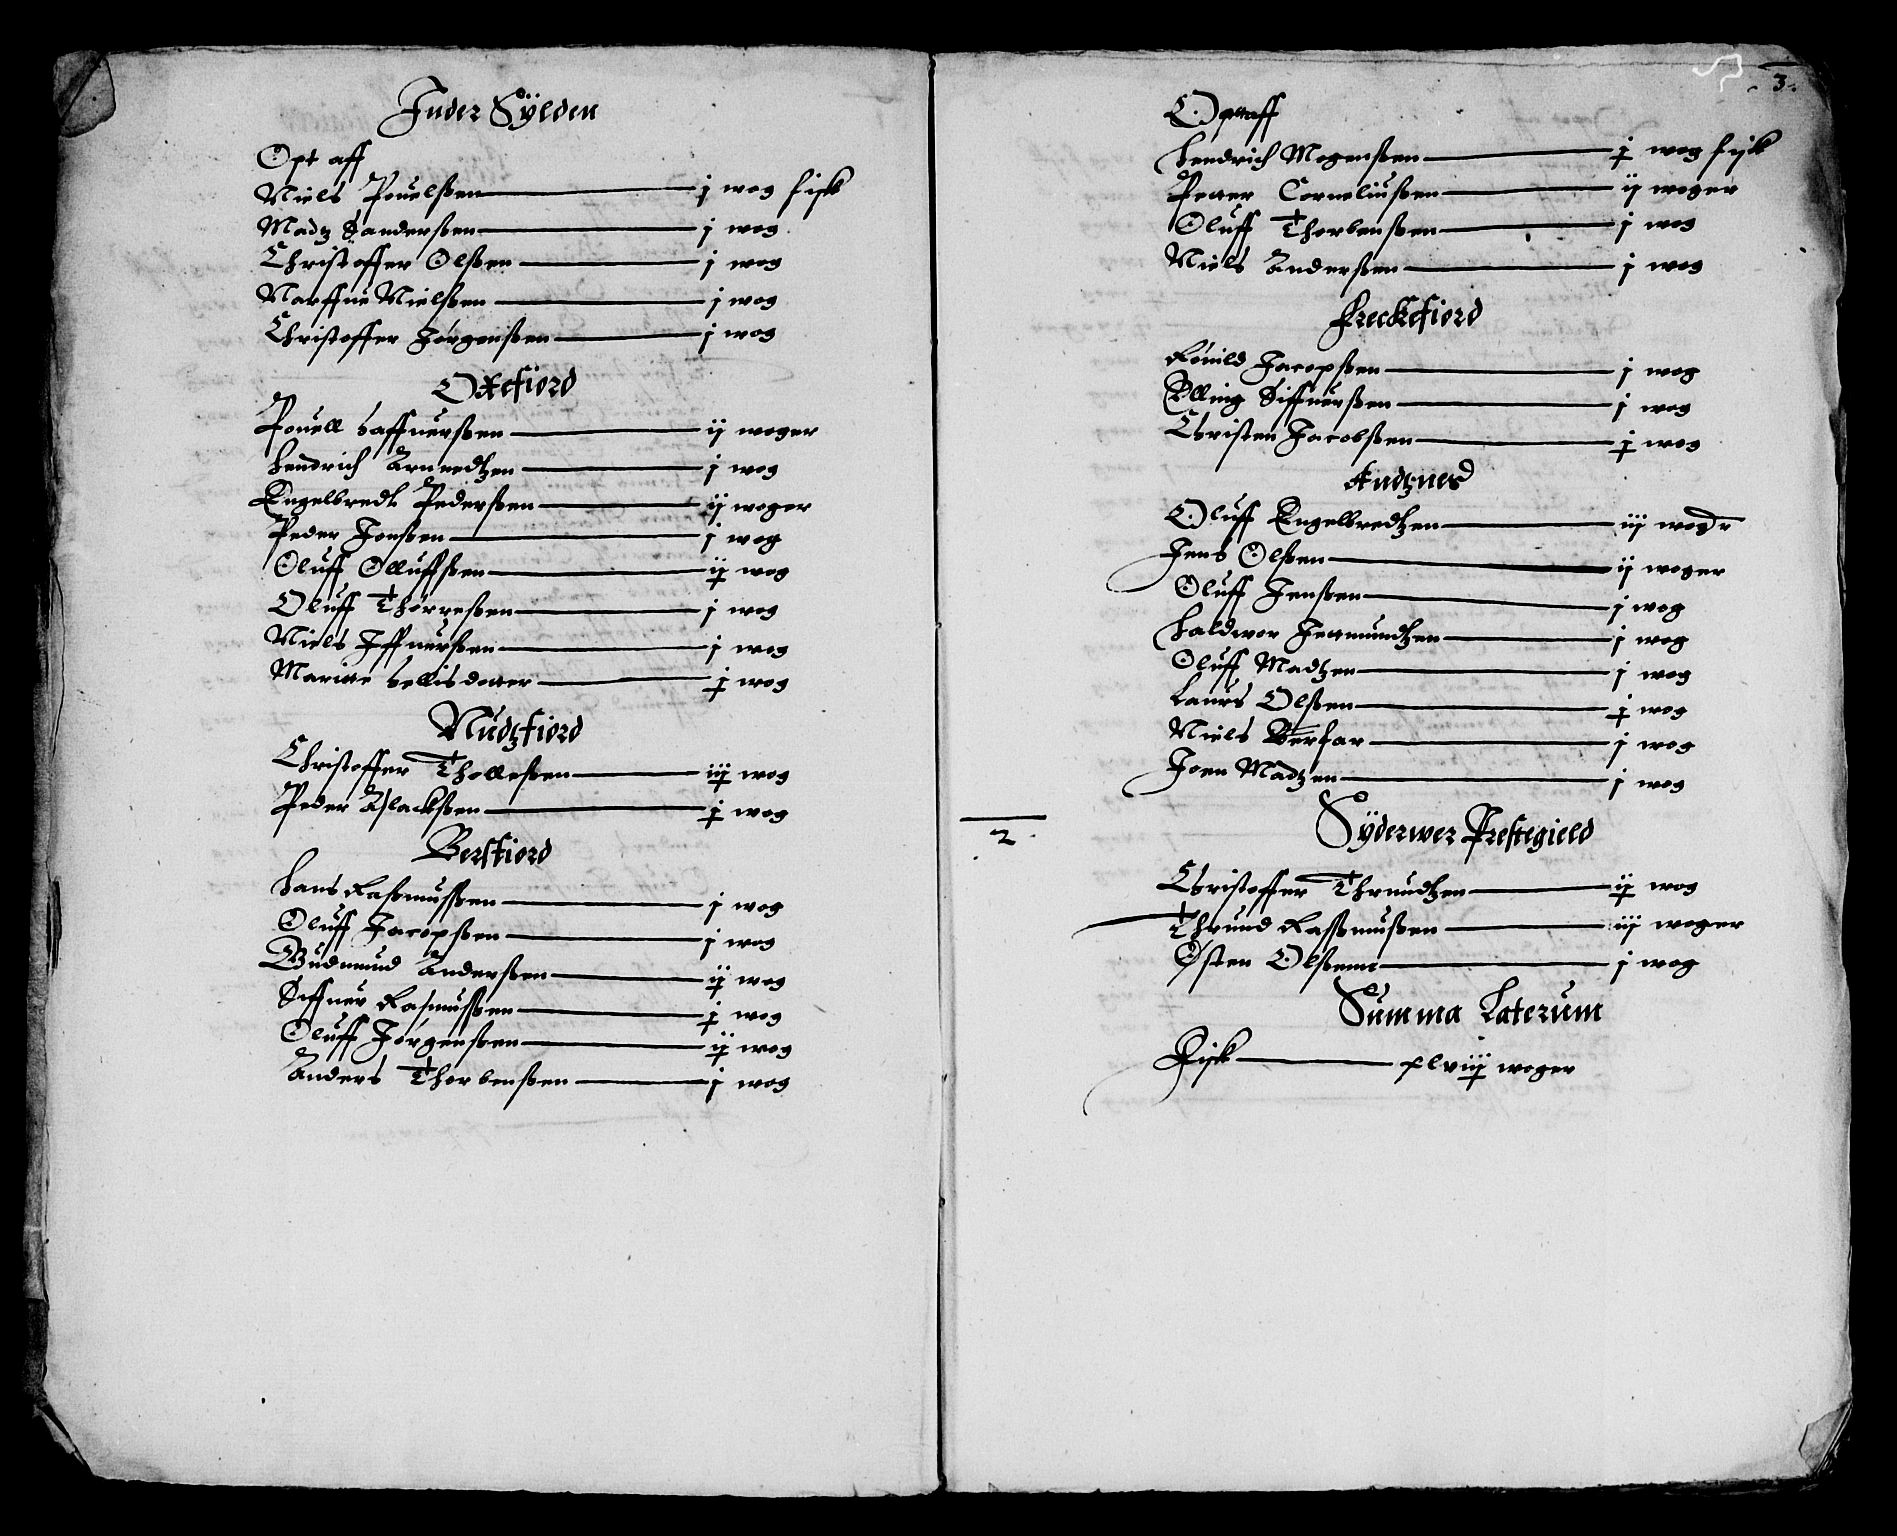 Inder Sÿlden
Opt aff
Niels Pouelßen j wog fisk
Madtz Sanderßen j wog
Christoffer Olßen j wog
Narffue Nielßen j wog
Christoffer Jørgenßen j wog
Oxefiord
Pouell Saffuerßen ij woger
Hendrich Arnuedtzen j wog
Engelbredt Pederßen ij woger
Peder Jonßen j wog
Oluff Olluffßen ij wog
Oluff Thørreßen j wog
Niels Iffuerßen j wog
Maritte Sellisdotter j wog
Nudtzfiord
Christoffer Tholleßen iij wog
Peder Aslackßen j wog
Bersfiord
Hans Raßmußen j wog
Oluff Jacopßen j wog
Gudmund Anderßen ij wog
Siffuer Rasmußen j wog
Oluff Jørgenßen ij wog
Anders Thorbenßen j wog
3
Optaff
Hendrich Mogenßen j wog fisk
Petter Corneliußen ij woger
Oluff Thorbenßen j wog
Niels Anderßen j wog
Freckefiord
Rouild Jacopßen j wog
Elling Siffuerßen j wog
Christen Jacobßen j wog
Andtznes
Oluff Engelbredtzen iij woger
Jens Olßen ij woger
Oluff Jenßen j wog
Haldwor Jermundtzen j wog
Oluff Madtzen j wog
Laurs Olßen j wog
Niels Berfar j wog
Joen Madtzen j wog
2
Sÿderwer Prestegield
Christoffer Thrundtzen ij wog
Thrund Raßmußen iij woger
Østen Olßenn j wog
Summa Laterum
Fisk xlviij woger